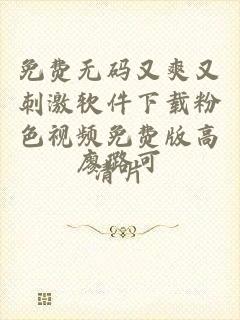 免费无码又爽又
刺激软件下载粉
色视频免费版高
清片
廖璐可